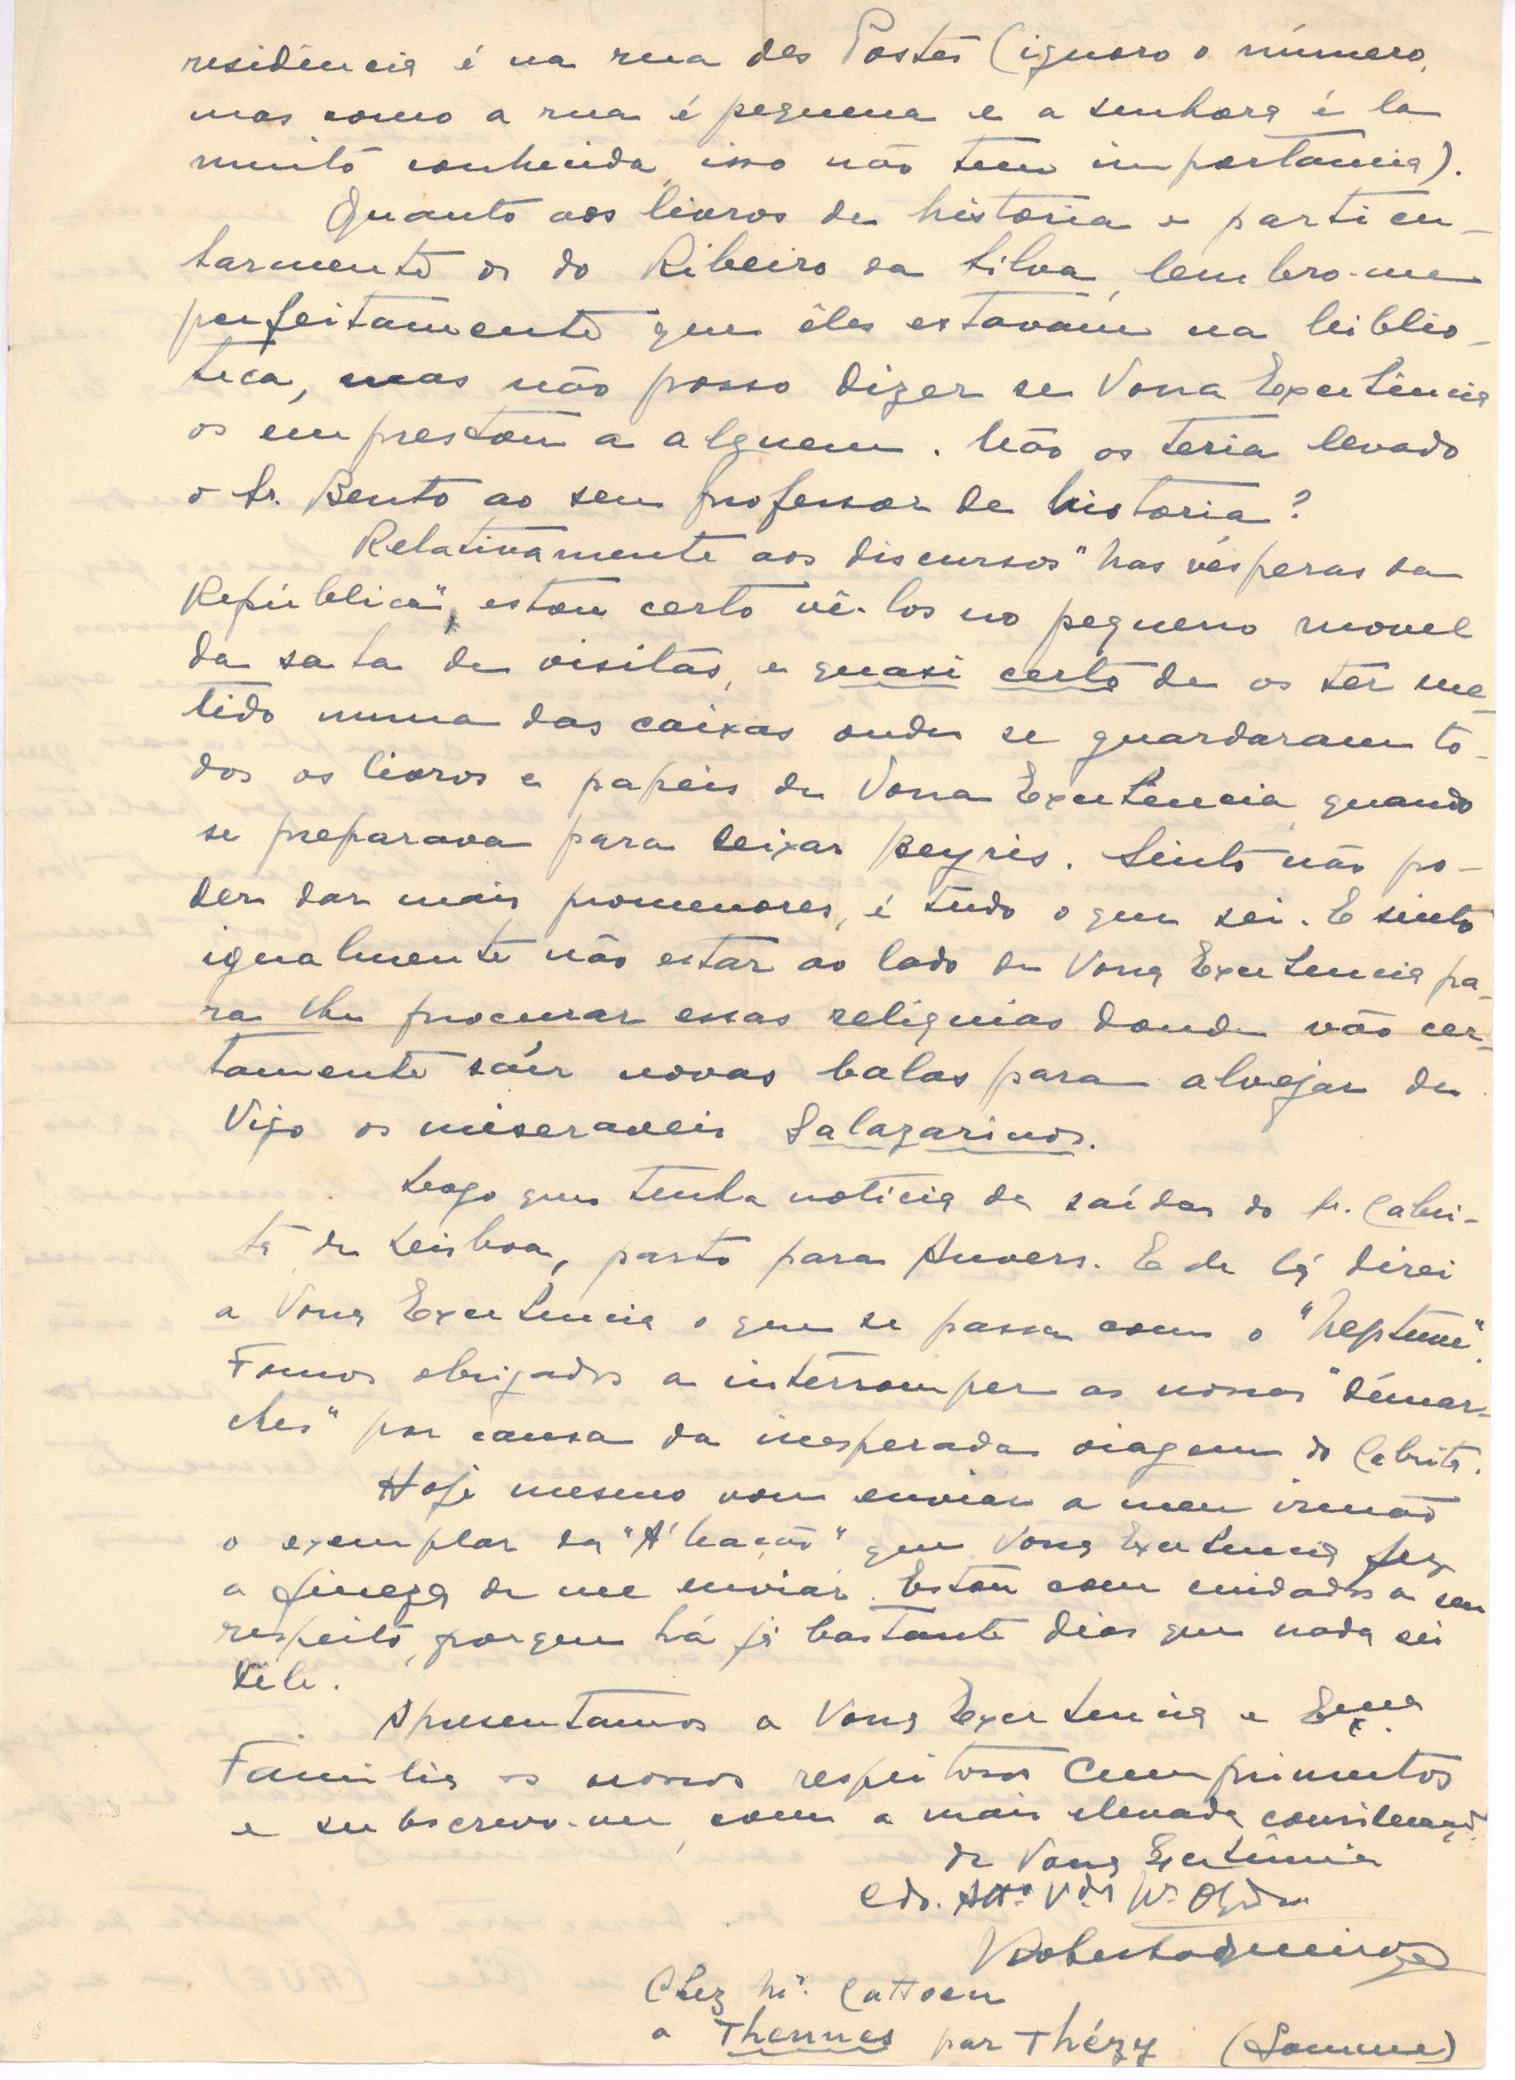 residência é na rua des Postes (ignoro o número,
mas como a rua é pequena e a senhora é la
muito conhecida, isso não tem importancia).
Quanto aos livros de historia e particu-
larmente os do Ribeiro da Silva, lembro-me
perfeitamente que êles estavam na biblio-
teca, mas não posso dizer se Vossa Excelência
os emprestou a alguem. Não os teria levado
o Sr. Bento ao seu professor de historia?
Relativamente aos discursos "Nas vésperas da
República", estou certo vê-los no pequeno movel
da sala de visitas, e quasi certo de os ter me-
tido numa das caixas onde se guardaram to-
dos os livros e papéis de Vossa Excelencia, quando
se preparava para deixar Beyris. Sinto não po-
der dar mais promenores, é tudo o que sei. E sinto
igualmente não estar ao lado de Vossa Excelencia pa-
ra lhe procurar essas reliquias donde vão cer-
tamente saír novas balas para alvejar de
Vigo os miseraveis Salazarinos.
Logo que tenha noticia da saída do Sr. Cabri-
ta de Lisboa, parto para Anvers. E de lá direi
a Vossa Excelencia o que se passa com o "Neptune".
Fomos obrigados a interromper as nossas "démar-
ches" por causa da inesperada viagem do Cabrita.
Hoje mesmo vou enviar a meu irmão
o exemplar da "A Nação" que Vossa Excelencia fez
a fineza de me enviar. Estou com cuidados a seu
respeito, porque há já bastante dias que nada sei
dêle.
Apresentamos a Vossa Excelencia e Exma.
Familia os nossos respeitosos cumprimentos
e subscrevo-me, com a mais elevada consideração
de Vossa Excelência
Cdo. Atto. Vdor
Chez Mr. Cattoen
a Thennes par Thézy (Somme)